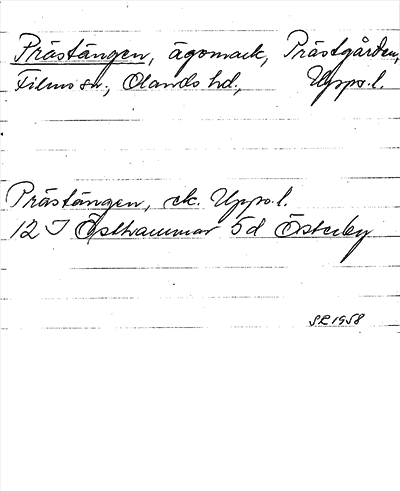 Prästängen, ägomark, Prästgården,
Films sn, Olands hd, Upps.l.
Prästängen, ek. Upps.l.
12 I Östhammar 5d Österby
SL 1958